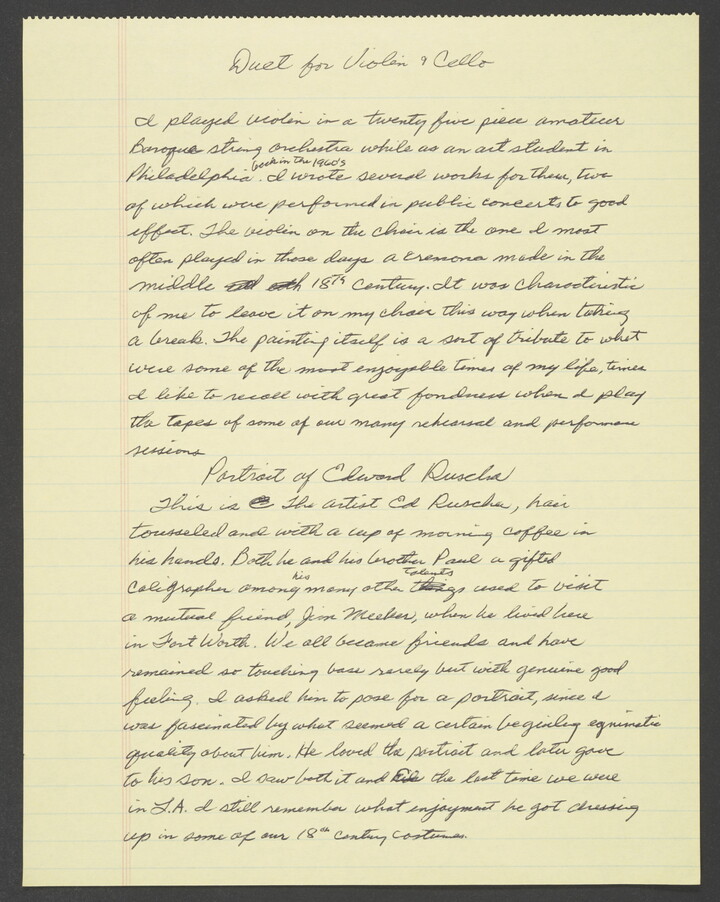 Duet for Violin & Cello
I played violin in a twenty five piece amateur
Baroque string orchestra while as an art student in
Philadelphia back in the 1960's. I wrote several works for them, two
of which were performed in public concerts to good
effect. The violin on the chair is the one I most
often played in those days a Cremona made in the
middle 18th Century. It was characteristic
of me to leave it on my chair this way when taking
a break. The painting itself is a sort of tribute to what
were some of the most enjoyable times of my life, times
I like to recall with great fondness when I play
the tapes of some of our many rehearsal and performance
sessions
Portrait of Edward Ruscha
This is The artist Ed Ruscha, hair
tousseled and with a cup of morning coffee in
his hands. Both he and his brother Paul a gifted
caligrapher among his many other talents used to visit
a mutual friend, Jim Meeker, when he lived here
in Fort Worth. We all became friends and have
remained so touching base rarely but with genuine good
feeling. I asked him to pose for a portrait, since I
was fascinated by what seemed a certain beguiling
quality about him. He loved the portrait and later gave
to his son. I saw both it and the last time we were
in L.A. I still remember what enjoyment he got dressing
up in some of our 18th Century costumes.